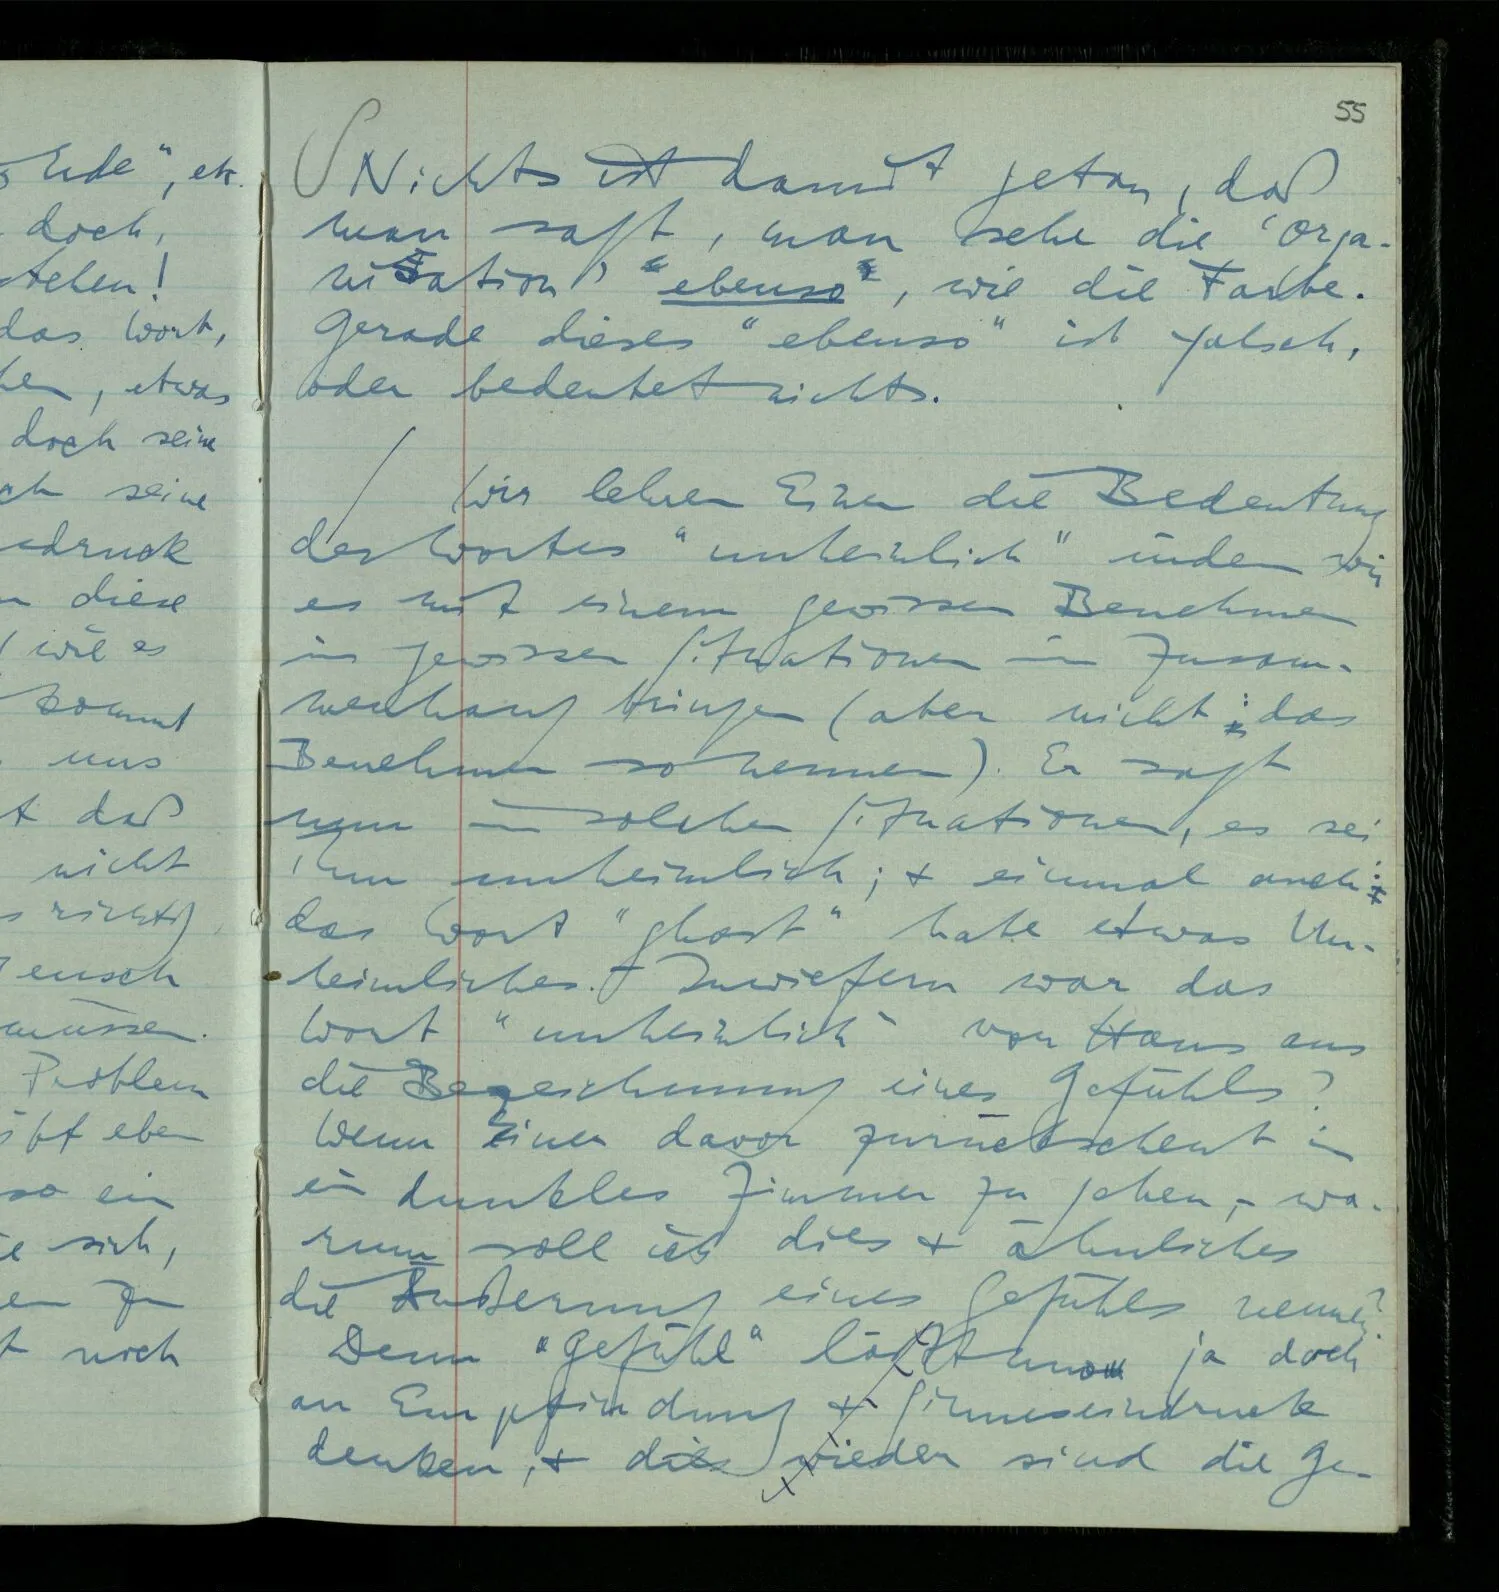 Ende", etc.
doch,
stehen!
das Wort,
etwas
doch seine
seine
diese
wie es
kommt
uns
daß
nicht
richtig
Mensch
müssen.
Problem
eben
so ein
sich,
zu
noch
55
Nichts ist damit getan, daß
man sagt, man sehe die 'Orga-
nisation' "ebenso", wie die Farbe.
Gerade dieses "ebenso" ist falsch,
oder bedeutet nichts.
Wir lehren Einen die Bedeutung
des Wortes "unheimlich" indem wir
es mit einem gewissen Benehmen
in gewissen Situationen in Zusam-
menhang bringen (aber nicht: das
Benehmen so nennen). Er sagt
nun in solchen Situationen, es sei
ihm unheimlich; & einmal auch:
das Wort "ghost" habe etwas Un-
heimliches. – Inwiefern war das
Wort "unheimlich" von Haus aus
die Bezeichnung eines Gefühls?
Wenn Einer davor zurückscheut in
ein dunkles Zimmer zu gehen, – wa-
rum soll ich dies & ähnliches
die Äußerung eines Gefühls nennen?
Denn "Gefühl" läßt uns ja doch
an Empfindung & Sinneseindruck
denken, & die wieder sind die Ge-